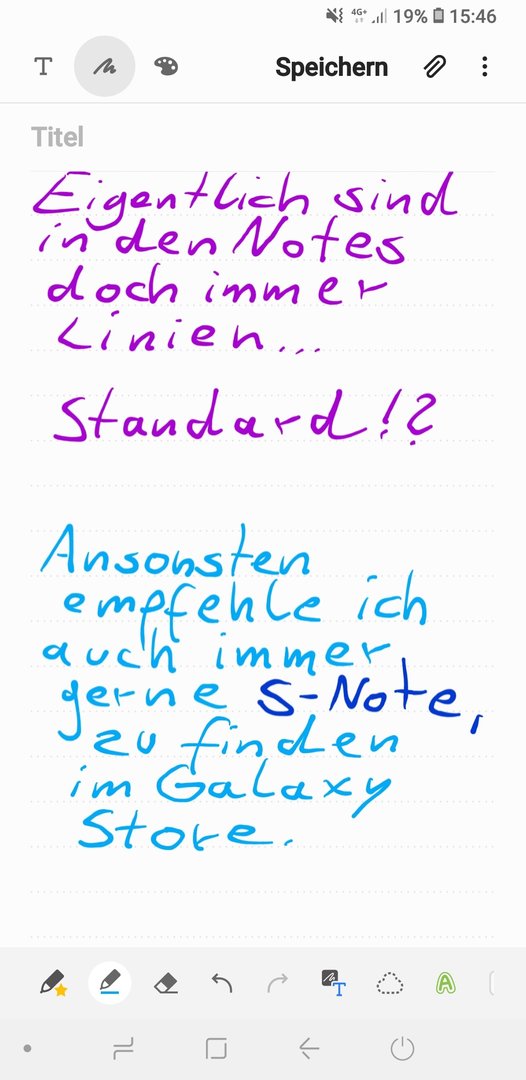 4G+ 19% 15:46
T Speichern
Titel
Eigentlich sind
in den Notes
doch immer
Linien...
Standard!?
Ansonsten
empfehle ich
auch immer
gerne S-Note,
zu finden
im Galaxy
Store.
T A